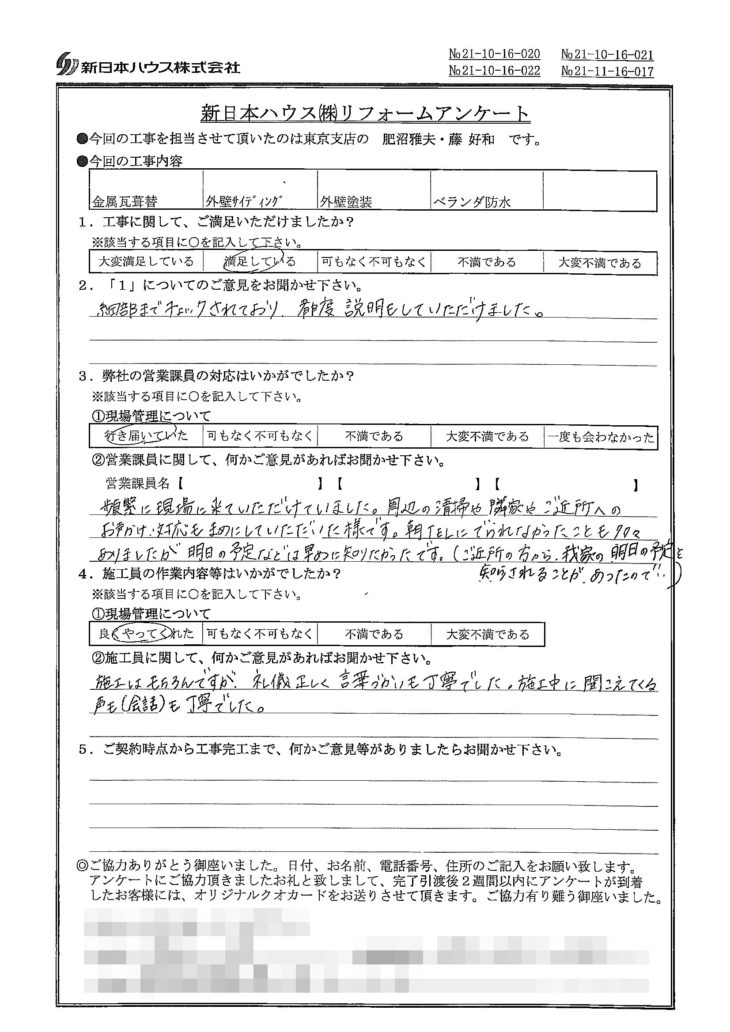 新日本ハウス株式会社
№21-10-16-020 №21-10-16-021
№21-10-16-022 №21-11-16-017
新日本ハウス㈱リフォームアンケート
●今回の工事を担当させて頂いたのは東京支店の 肥沼雅夫・藤 好和 です。
●今回の工事内容
金属瓦葺替 外壁ｻｲﾃﾞｨﾝｸﾞ 外壁塗装 ベランダ防水
１．工事に関して、ご満足いただけましたか？
※該当する項目に○を記入して下さい。
大変満足している 満足している 可もなく不可もなく 不満である 大変不満である
２．「１」についてのご意見をお聞かせ下さい。
細部までチェックされており、都度 説明もしていただけました。
３．弊社の営業課員の対応はいかがでしたか？
※該当する項目に○を記入して下さい。
①現場管理について
行き届いていた 可もなく不可もなく 不満である 大変不満である 一度も会わなかった
②営業課員に関して、何かご意見があればお聞かせ下さい。
営業課員名【 】【 】【 】
頻繁に現場に来ていただけていました。周辺の清掃や隣家やご近所への
お声かけ・対応もまめにしていただいた様です。朝TELにでられなかったことも多々
ありましたが明日の予定などは早めに知りたかったです。（ご近所の方から、我家の明日の予定を
知らされることがあったので…）
４．施工員の作業内容等はいかがでしたか？
※該当する項目に○を記入して下さい。
①現場管理について
良くやってくれた 可もなく不可もなく 不満である 大変不満である
②施工員に関して、何かご意見があればお聞かせ下さい。
施工はもちろんですが、礼儀正しく言葉づかいも丁寧でした。施工中に聞こえてくる
声も（会話）も丁寧でした。
５．ご契約時点から工事完工まで、何かご意見等がありましたらお聞かせ下さい。
◎ご協力ありがとう御座いました。日付、お名前、電話番号、住所のご記入をお願い致します。
アンケートにご協力頂きましたお礼と致しまして、完了引渡後２週間以内にアンケートが到着
したお客様には、オリジナルクオカードをお送りさせて頂きます。ご協力有り難う御座いました。